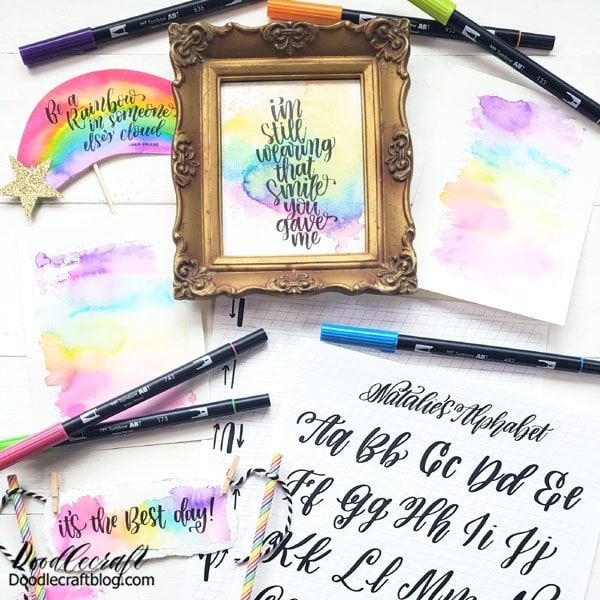 636
Tombow ABT
Tombow ABT
933
133
Be a
Rainbow
in someone
else's cloud
- Maya Angelou
i'm
still
wearing
that
smile
you
gave
me
Tombow ABT
743
Tombow ABT
173
Tombow ABT
493
Natalie's Alphabet
Aa Bb Cc Dd Ee
Ff Gg Hh Ii Jj
Kk Ll Mm
it's the Best day!
Doodlecraft
Doodlecraftblog.com